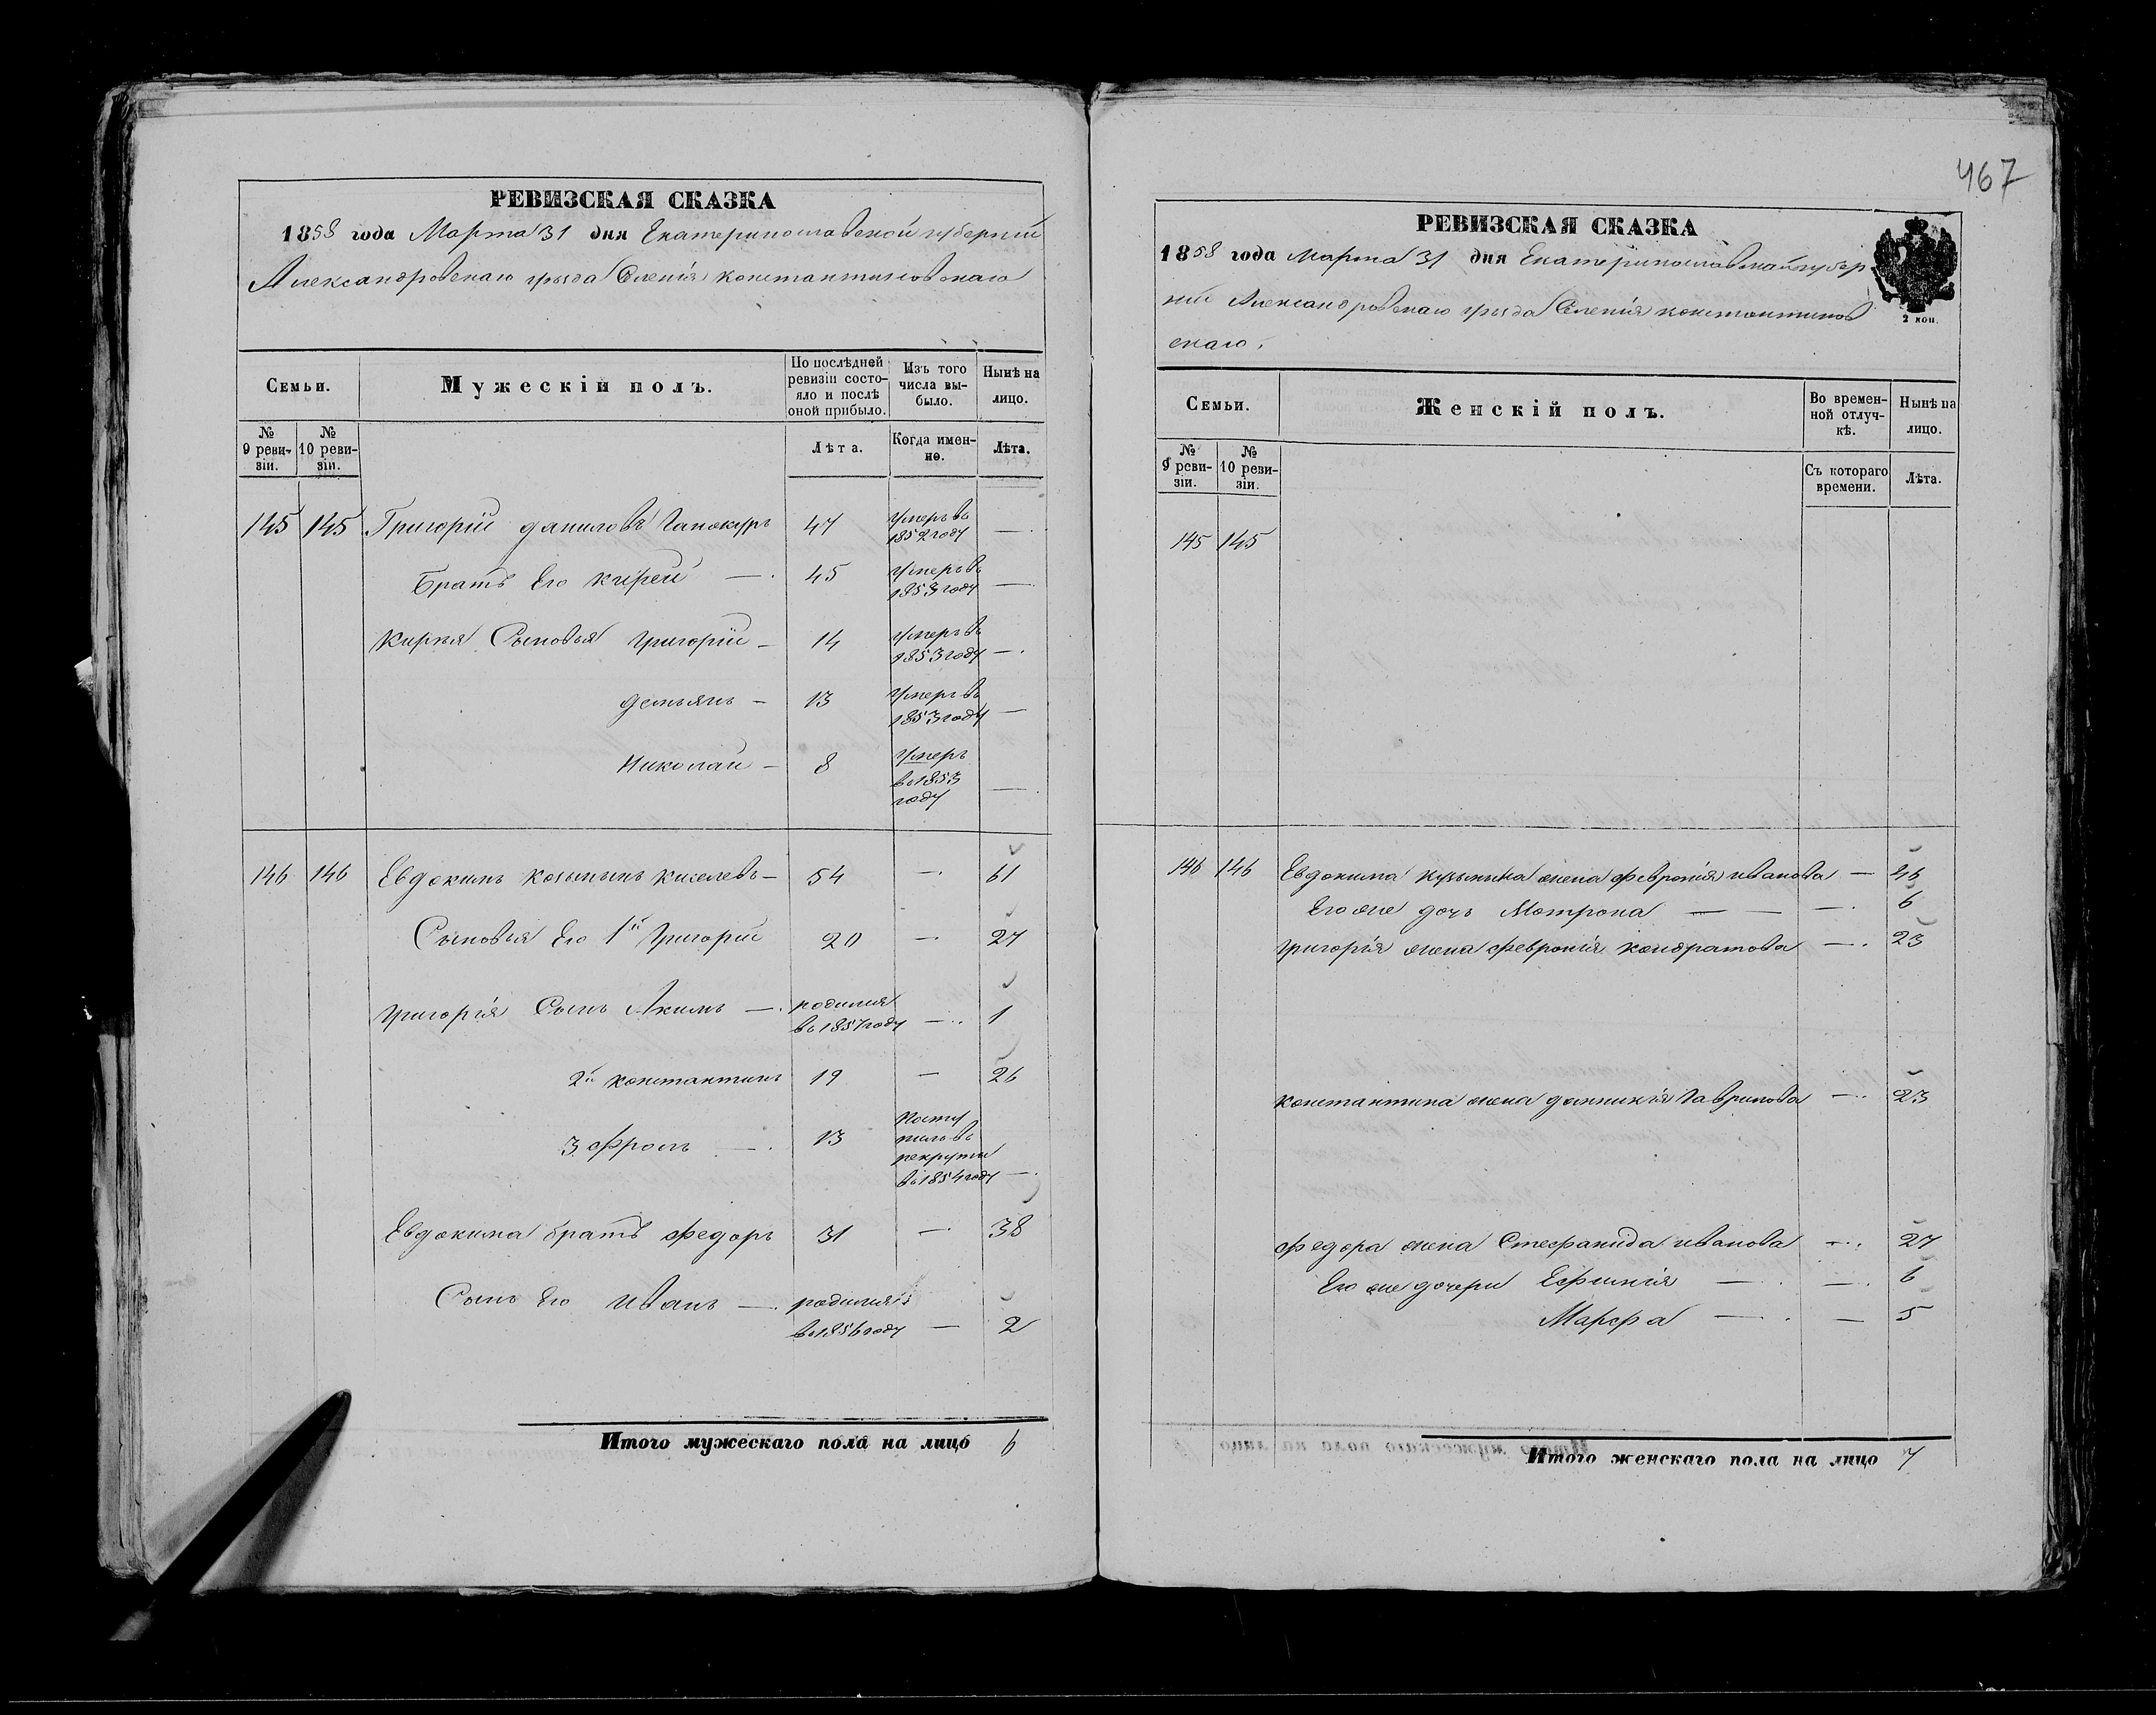 РЕВИЗСКАЯ СКАЗКА
1858 года Марта 31 дня Екатеринославской губернии
Александровскаго уезда Селенія константиновскаго
Семьи.
Мужескій полъ.
По послѣдней ревизіи состояло и послѣ оной прибыло.
Изъ того числа выбыло.
Нынѣ на лицо.
№ 9 ревизіи.
№ 10 ревизіи.
Лѣта.
Когда именно.
Лѣта.
145 145 Григорій даниловъ 47 Умеръ въ 1852 году —
Братъ Его кирей — 45 Умеръ въ 1853 году —
Кирея Сыновья григорій — 14 Умеръ въ 1853 году —
демьянъ — 13 Умеръ въ 1853 году —
Николай — 8 Умеръ въ 1853 году —
146 146 Евдокимъ козьминъ киселевъ — 54 — 61
Сыновья Его 1й григорій 20 — 27
григорія Сынъ Акимъ — родился въ 1857 году — 1
2й константинъ 19 — 26
3. фролъ — 13 Поступилъ въ рекруты въ 1854 году —
Евдокима братъ федоръ 31 — 38
Сынъ Его иванъ — родился въ 1856 году — 2
Итого мужескаго пола на лицо 6
467
РЕВИЗСКАЯ СКАЗКА
1858 года Марта 31 дня Екатеринославской губер
ніи Александровскаго уезда Селенія константинов
скаго.
2 коп.
Семьи.
Женскій полъ.
Во временной отлучкѣ.
Нынѣ на лицо.
№ 9 ревизіи.
№ 10 ревизіи.
Съ котораго времени.
Лѣта.
145 145
146 146 Евдокима кузьмина жена февронія иванова — 46
Его же дочь Мотрона — — — 6
григорія жена февронія кондратова — 23
константина жена гаврилова — 23
федора жена Стефанида иванова — 27
Его же дочери Ефимія — — 6
Марфа — — 5
Итого женскаго пола на лицо 7